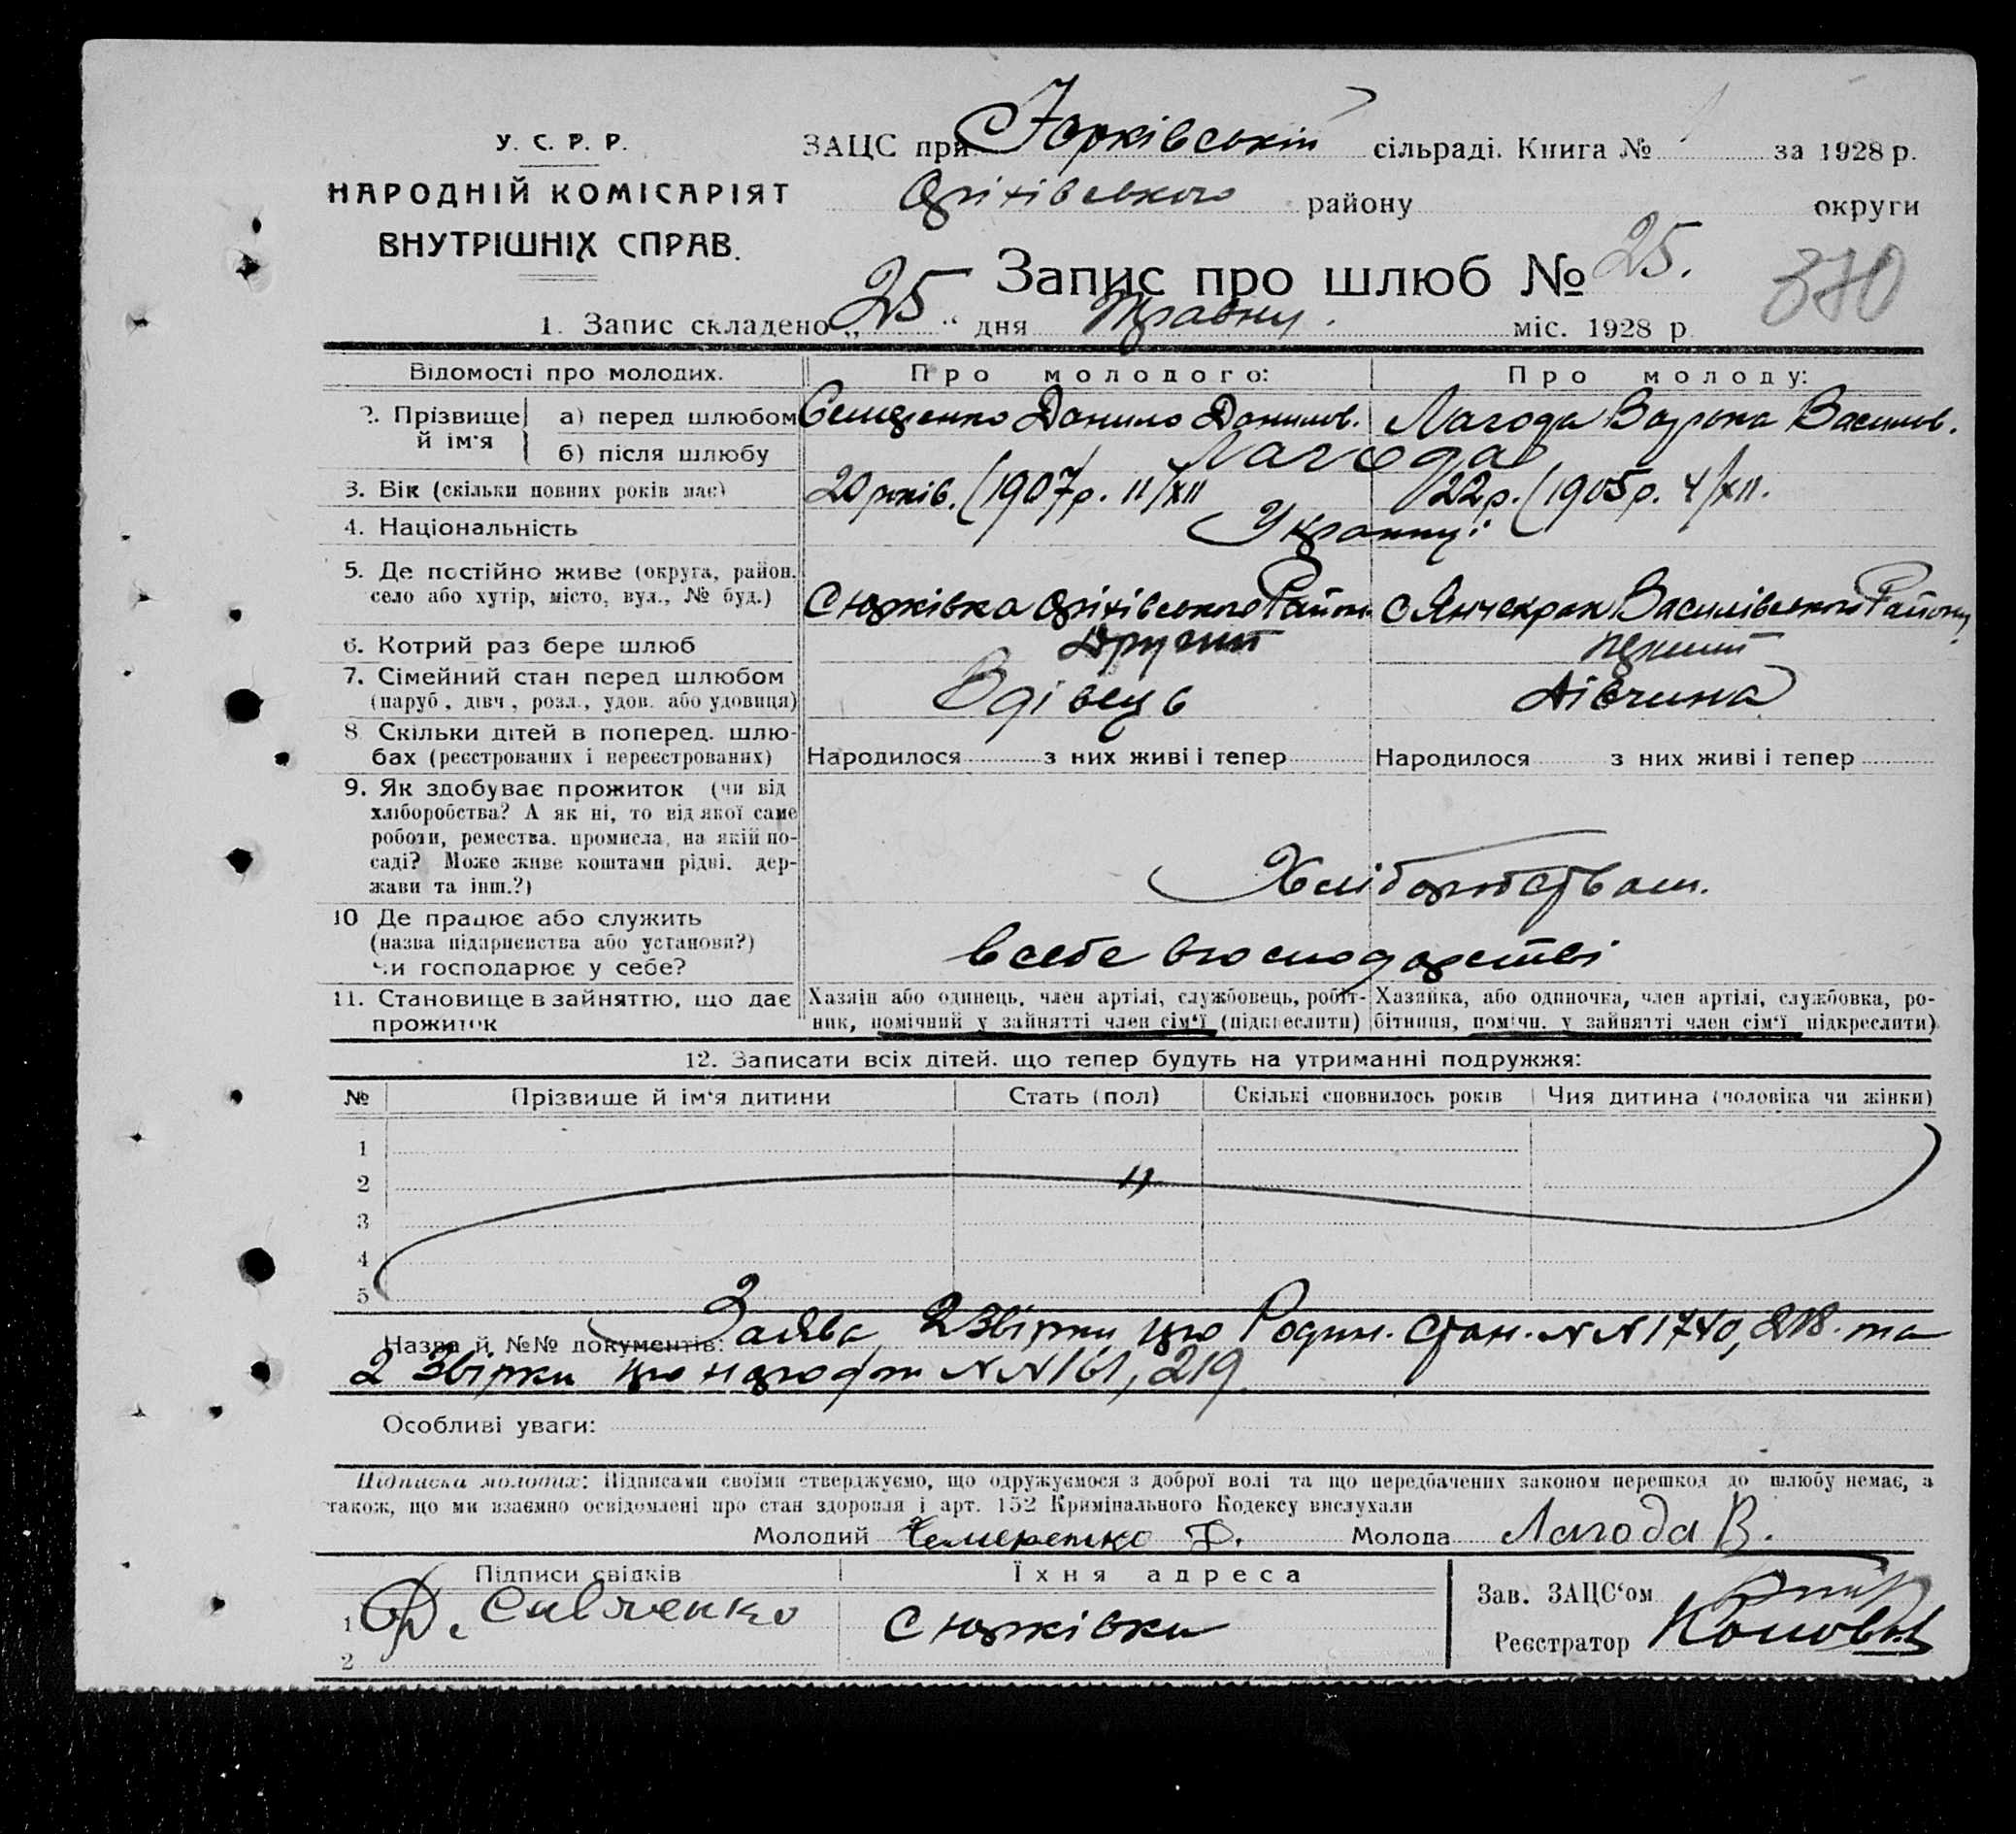 У. С. Р. Р.
НАРОДНІЙ КОМІСАРІЯТ
ВНУТРІШНІХ СПРАВ.
ЗАЦС при Юрківській сільраді. Книга № за 1928 р.
Оріхівського району округи
Запис про шлюб № 25.
370
1. Запис складено „25“ дня Травну. міс. 1928 р.
Відомості про молодих. Про молодого: Про молоду:
2. Прізвище й ім'я
а) перед шлюбом Данило Данилов. Лагода Василів.
б) після шлюбу Лагода
3. Вік (скільки повних років має) 20 років. (1907 р. 11/XII 22 р. (1905 р. 4/XII.
4. Національність Українці
5. Де постійно живе (округа, район, село або хутір, місто, вул., № буд.) С Юрківка Оріхівського Району С Янчекрак Василівського Району
6. Котрий раз бере шлюб Другий перший
7. Сімейний стан перед шлюбом (паруб., дівч., розл., удов. або удовиця) Вдівець дівчина
8. Скільки дітей в поперед. шлюбах (реєстрованих і нереєстрованих) Народилося з них живі і тепер Народилося з них живі і тепер
9. Як здобуває прожиток (чи від
хліборобства? А як ні, то від якої саме
роботи, ремества, промисла, на якій по-
саді? Може живе коштами рідні, дер-
жави та інш.?)
Хліборобством.
10 Де працює або служить
(назва підприємства або установи?)
чи господарює у себе?
в себе в господарстві
11. Становище в зайняттю, що дає прожиток
Хазяїн або одинець, член артілі, службовець, робіт-
ник, помічний у зайнятті член сім'ї (підкреслити)
Хазяйка, або одиночка, член артілі, службовка, ро-
бітниця, помічн. у зайнятті член сім'ї підкреслити)
12. Записати всіх дітей, що тепер будуть на утриманні подружжя:
№ Прізвище й ім'я дитини Стать (пол) Скількі сповнилось років Чия дитина (чоловіка чи жінки)
1
2 "
3
4
5
Назва й №№ документів: Заява 2 Звірки про Родин. стан. №№ 1740, 218. та
2 Звірки про №№ 161, 219.
Особливі уваги:
Підписка молодих: Підписами своїми стверджуємо, що одружуємося з доброї волі та що передбачених законом перешкод до шлюбу немає, а
також, що ми взаємно освідомлені про стан здоровля і арт. 152 Кримінального Кодексу вислухали
Молодий Д. Молода Лагода В.
Підписи свідків Їхня адреса
1 Савченко С Юрківка
2
Зав. ЗАЦС'ом
Реєстратор